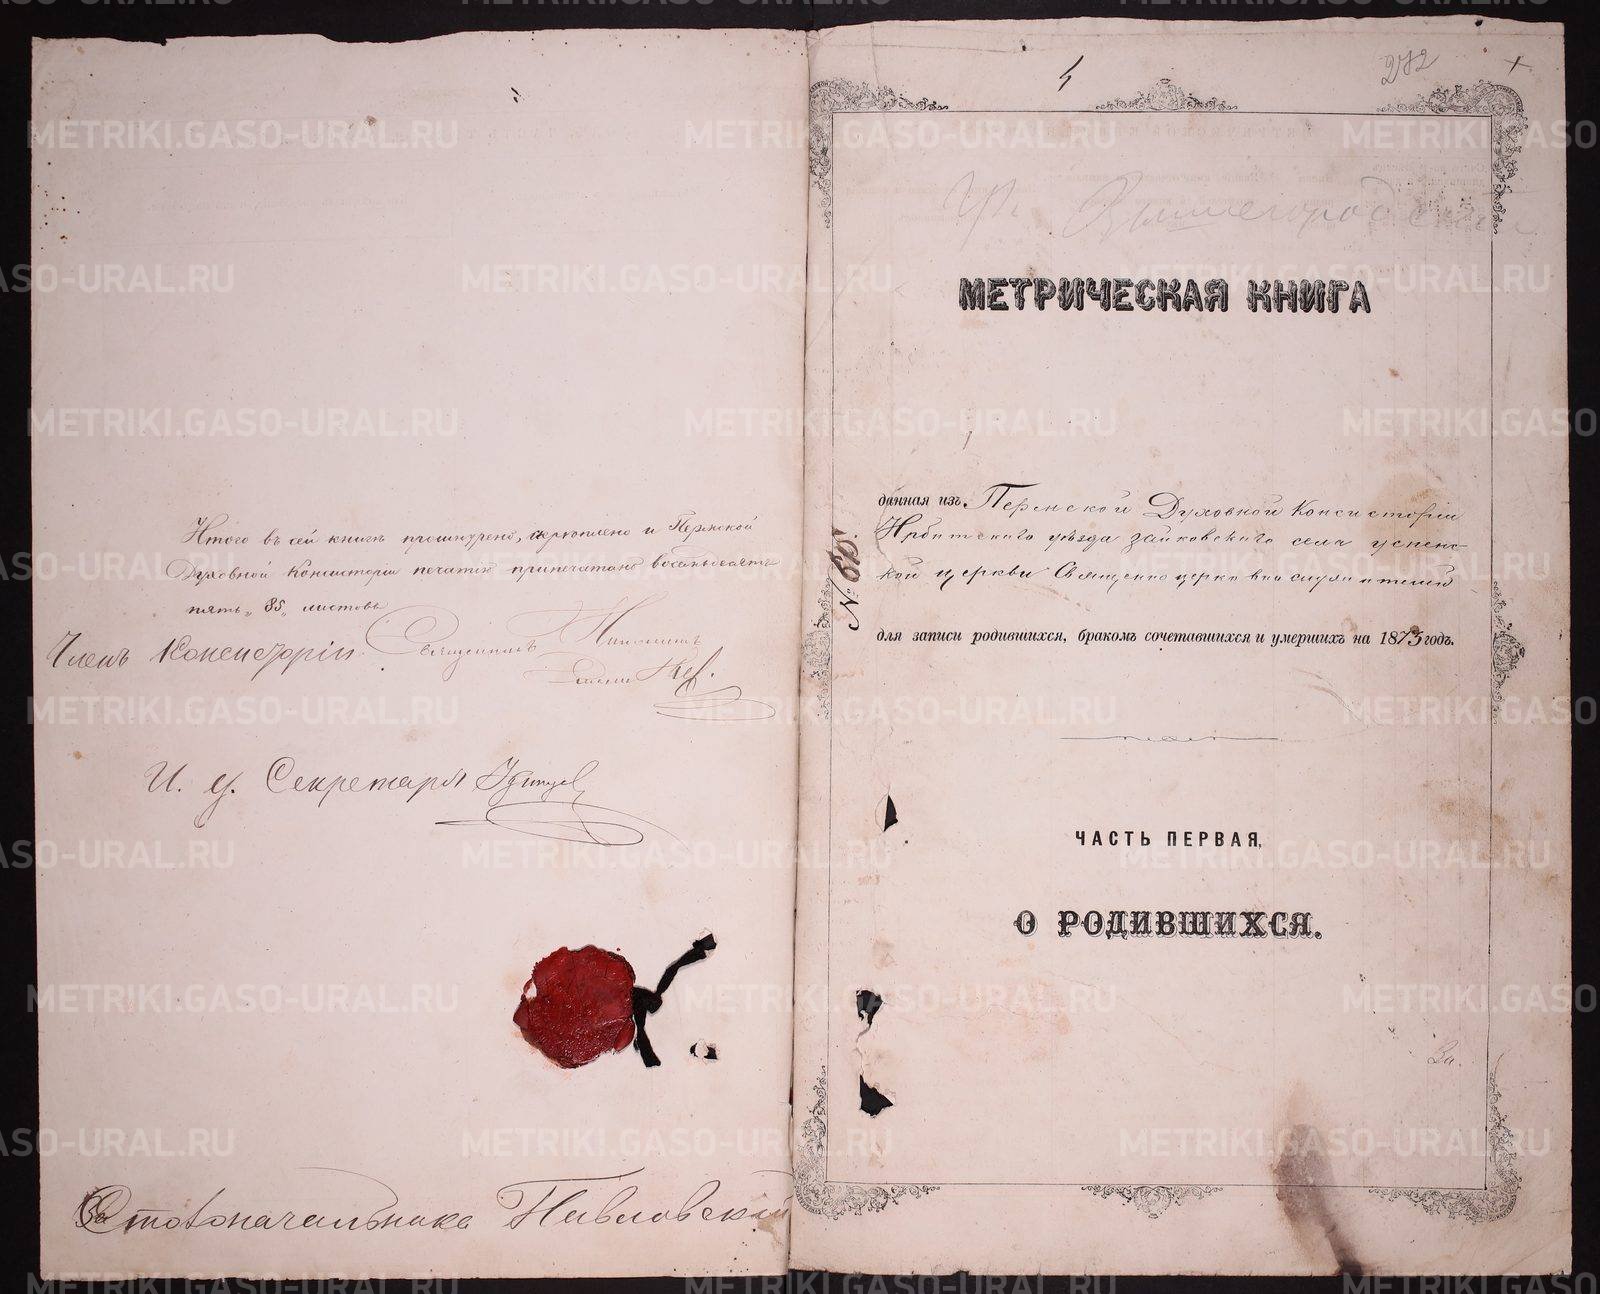 Итого въ сей книгѣ прошнурено, скрѣплено и Пермской
Духовной Консисторіи печатью припечатано восемьдесятъ
пять „85„ листовъ
Членъ Консисторіи Священникъ
И. д. Секретаря
За Столоначальника Павловскій
282
МЕТРИЧЕСКАЯ КНИГА
данная изъ Пермской Духовной Консисторіи
Ирбитскаго уѣзда Зайковскаго села Успенс-
кой церкви Священно церковно служителямъ
для записи родившихся, бракомъ сочетавшихся и умершихъ на 1873 годъ.
ЧАСТЬ ПЕРВАЯ,
О РОДИВШИХСЯ.
METRIKI.GASO-URAL.RU